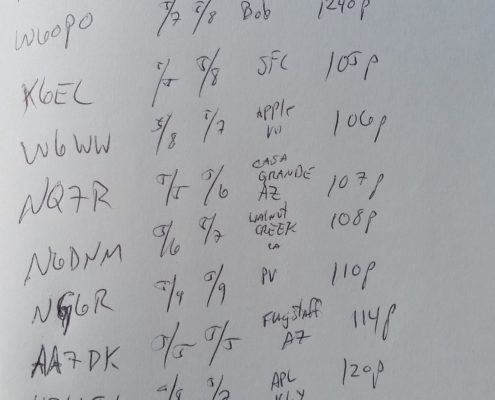 W6OPO 5/7 5/8 Bob 1240p
K6EC 5/5 5/8 SFC 105p
W6WW 5/8 5/7 Apple 106p
NQ7R 5/5 5/6 CASA GRANDE AZ 107p
N6DNM 5/6 5/7 WALNUT CREEK CA 108p
N6R 5/4 5/9 PV 110p
AA7DK 5/5 5/5 Flagstaff AZ 114p
APL 120p